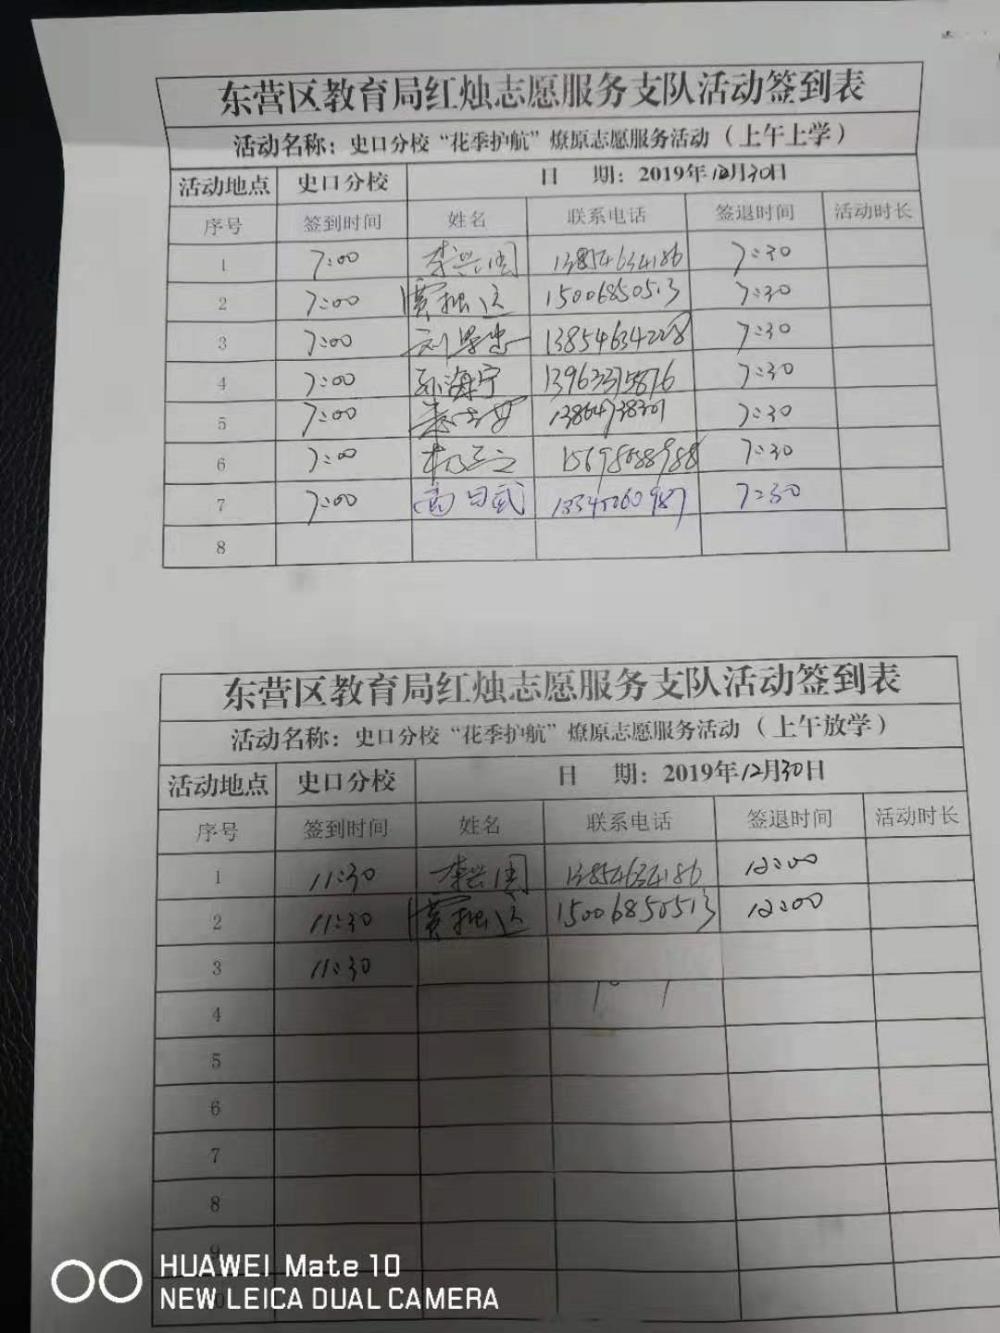 东营区教育局红烛志愿服务支队活动签到表
活动名称：史口分校“花季护航”燎原志愿服务活动（上午上学）
活动地点 史口分校 日 期：2019年12月30日
序号 签到时间 姓名 联系电话 签退时间 活动时长
1 7:00 李兴国 13854634186 7:30
2 7:00 贾振远 15006850513 7:30
3 7:00 13854634228 7:30
4 7:00 孙海宁 7:30
5 7:00 7:30
6 7:00 7:30
7 7:00 7:30
8
东营区教育局红烛志愿服务支队活动签到表
活动名称：史口分校“花季护航”燎原志愿服务活动（上午放学）
活动地点 史口分校 日 期：2019年12月30日
序号 签到时间 姓名 联系电话 签退时间 活动时长
1 11:30 李兴国 13854634186 12:00
2 11:30 贾振远 15006850513 12:00
3 11:30
4
5
6
7
8
9
HUAWEI Mate 10
NEW LEICA DUAL CAMERA